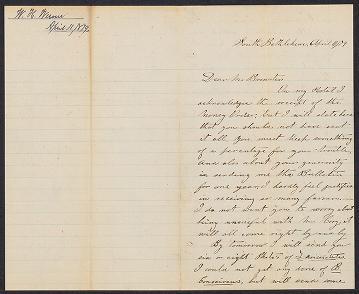 W. H. Werner
April 11/1879.
South Bethlehem, April 9/79
Dear Mr Brewster
On my Postal I
acknowledge the receipt of the
Money Order; but I will state here
that you should not have sent
it all. You must keep something
of a percentage for your trouble
And also about your generosity
in sending me the Bulletin
for one year, I hardly feel justified
in receiving so many favors.
I do not want you to worry about
being unuseful with the boy, it
will all come right by and by
By tomorrow I will send for
six or eight Plates of
I could not get any done of
but will send some